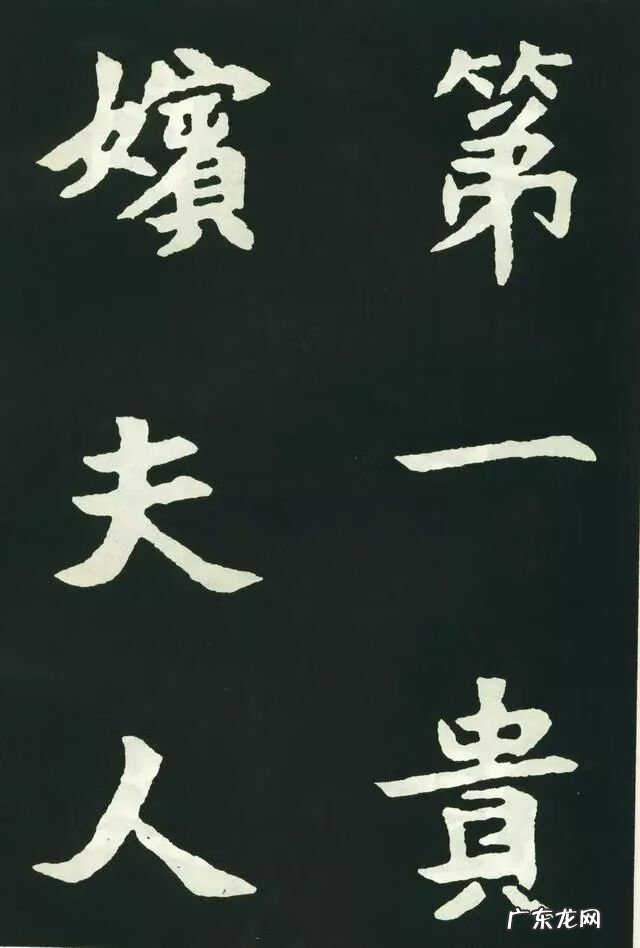 第一貴
嬪夫人
广东龙网